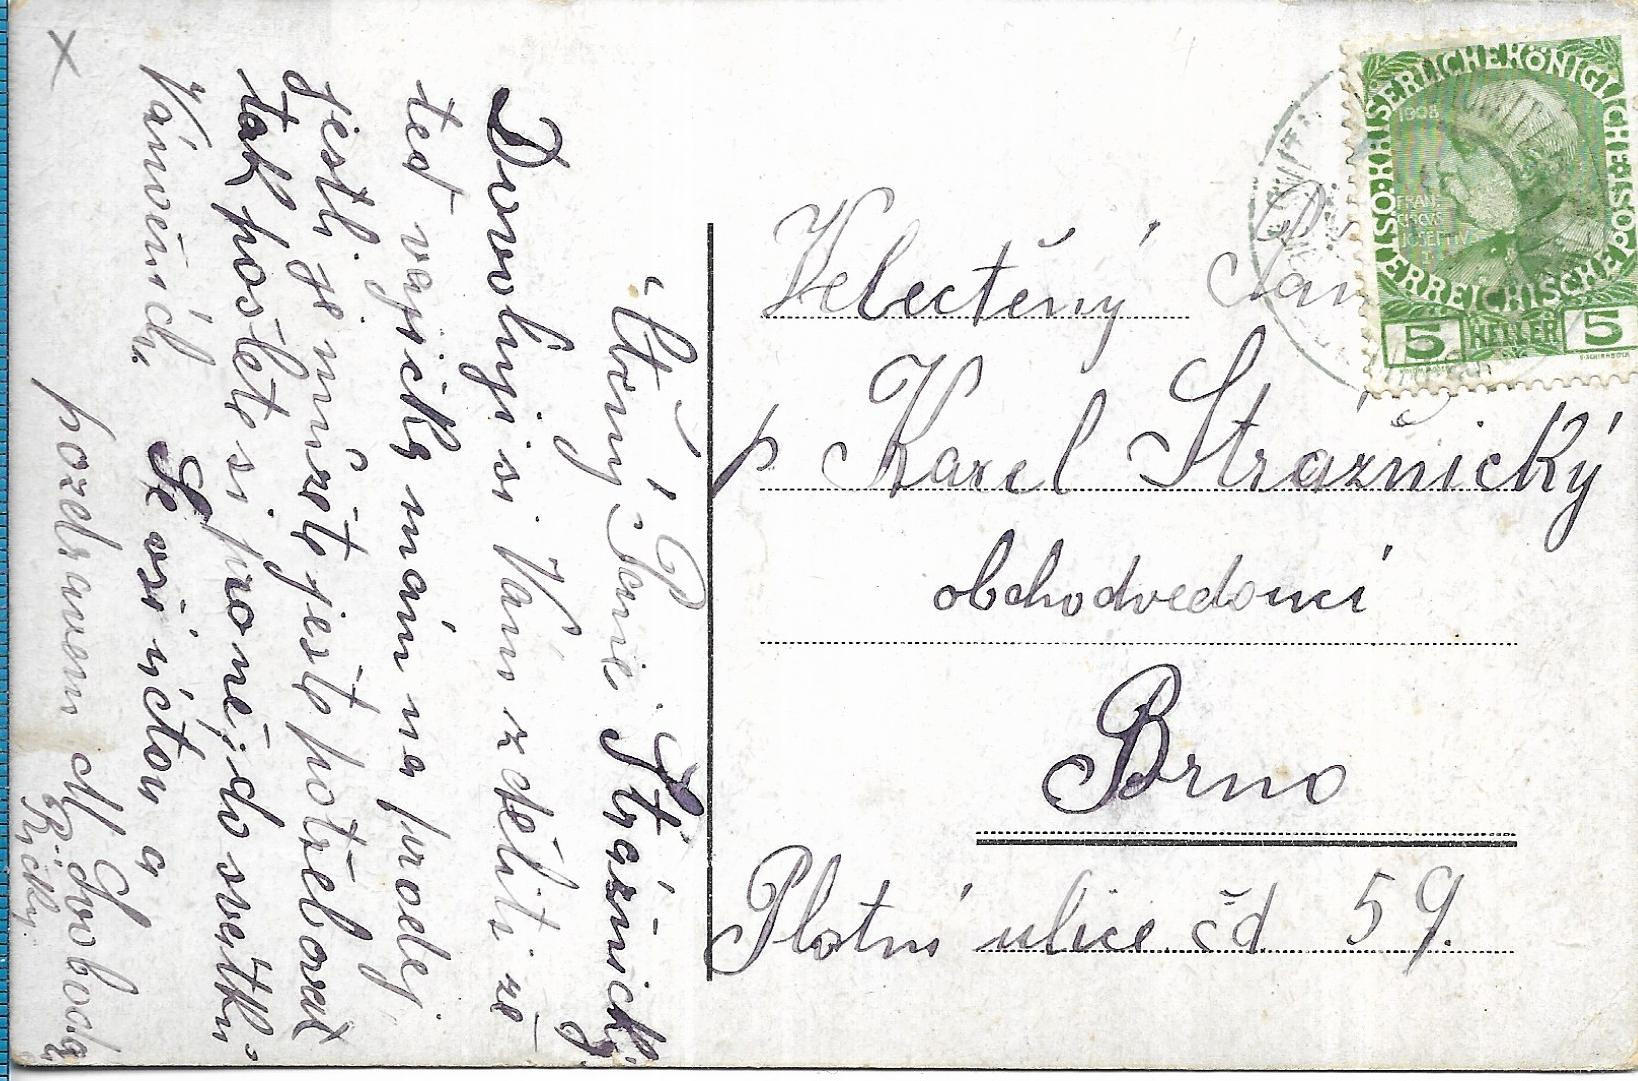 Ctěný Pane, Strážnický
Dovoluji si Vám zděliti že
teď vajíčky mám na prodej
jestli je mužete ješte potřebovat
tak pošlete si proně, do svatku
Vánočních.
Se vší úctou a
pozdravem M Svoboda
Řičky
Velectěný Pan
p Karel Stražnický
obchodvedoucí
Brno
Plotní ulice čd 59.
KAISERLICHE KÖNIGLICHE ÖSTERREICHISCHE POST
1908
FRAN
CISCVS
IOSEPH
5 HELLER 5